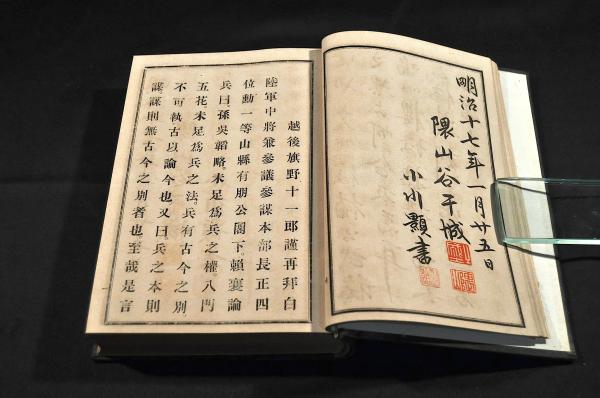 明治十七年一月廿五日
隈山谷干城
小川顯書
越後旗野十一郎謹再拜白
陸軍中將兼參議參謀本部長正四
位勳一等山縣有朋公閣下。賴襄論
兵曰孫吳韜略未足爲兵之權。八門
五花未足爲兵之法。兵有古今之別
不可執古以論今也又曰兵之本則
謀。謀則無古今之別者也至哉是言